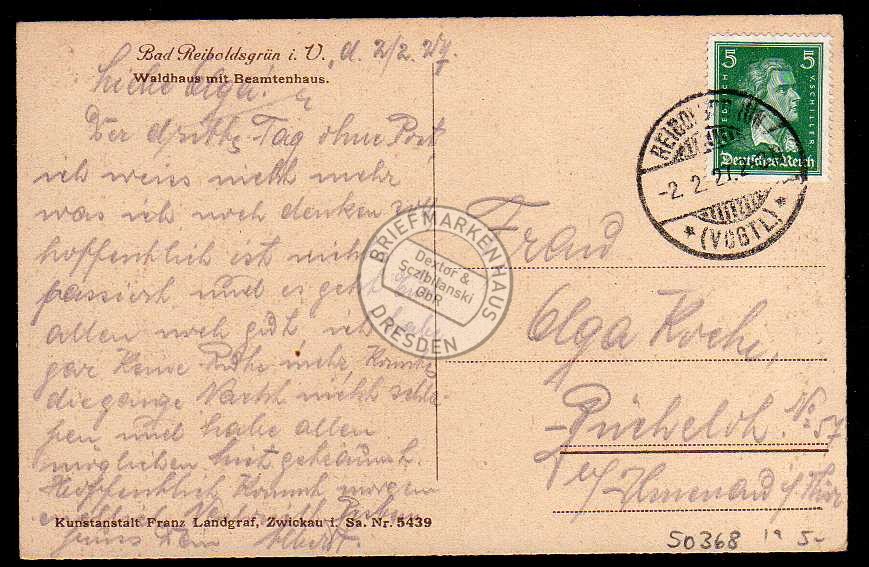 Bad Reiboldsgrün i. V., d. 2/2. 27.
Waldhaus mit Beamtenhaus.
Liebe Olga!
Der dritte Tag ohne Post,
ich weiss nicht mehr
was ich noch denken
hoffentlich ist
passiert und es geht
allen noch gut, ich habe
gar keine Ruhe mehr, konnte
die ganze Nacht nicht schla-
fen und habe allen
möglichen
Hoffentlich kommt morgen
endlich Nachricht
Gruss Dein Albert.
Kunstanstalt Franz Landgraf, Zwickau i. Sa. Nr. 5439
5 5
FRIEDRICH V. SCHILLER
Deutsches Reich
-2. 2. 27.
* (VOGTL) *
BRIEFMARKENHAUS
Dextor &
Sczibilanski
GbR
DRESDEN
Frau
Olga Koche,
No 57
b/ Ilmenau / Thür
50368 5-